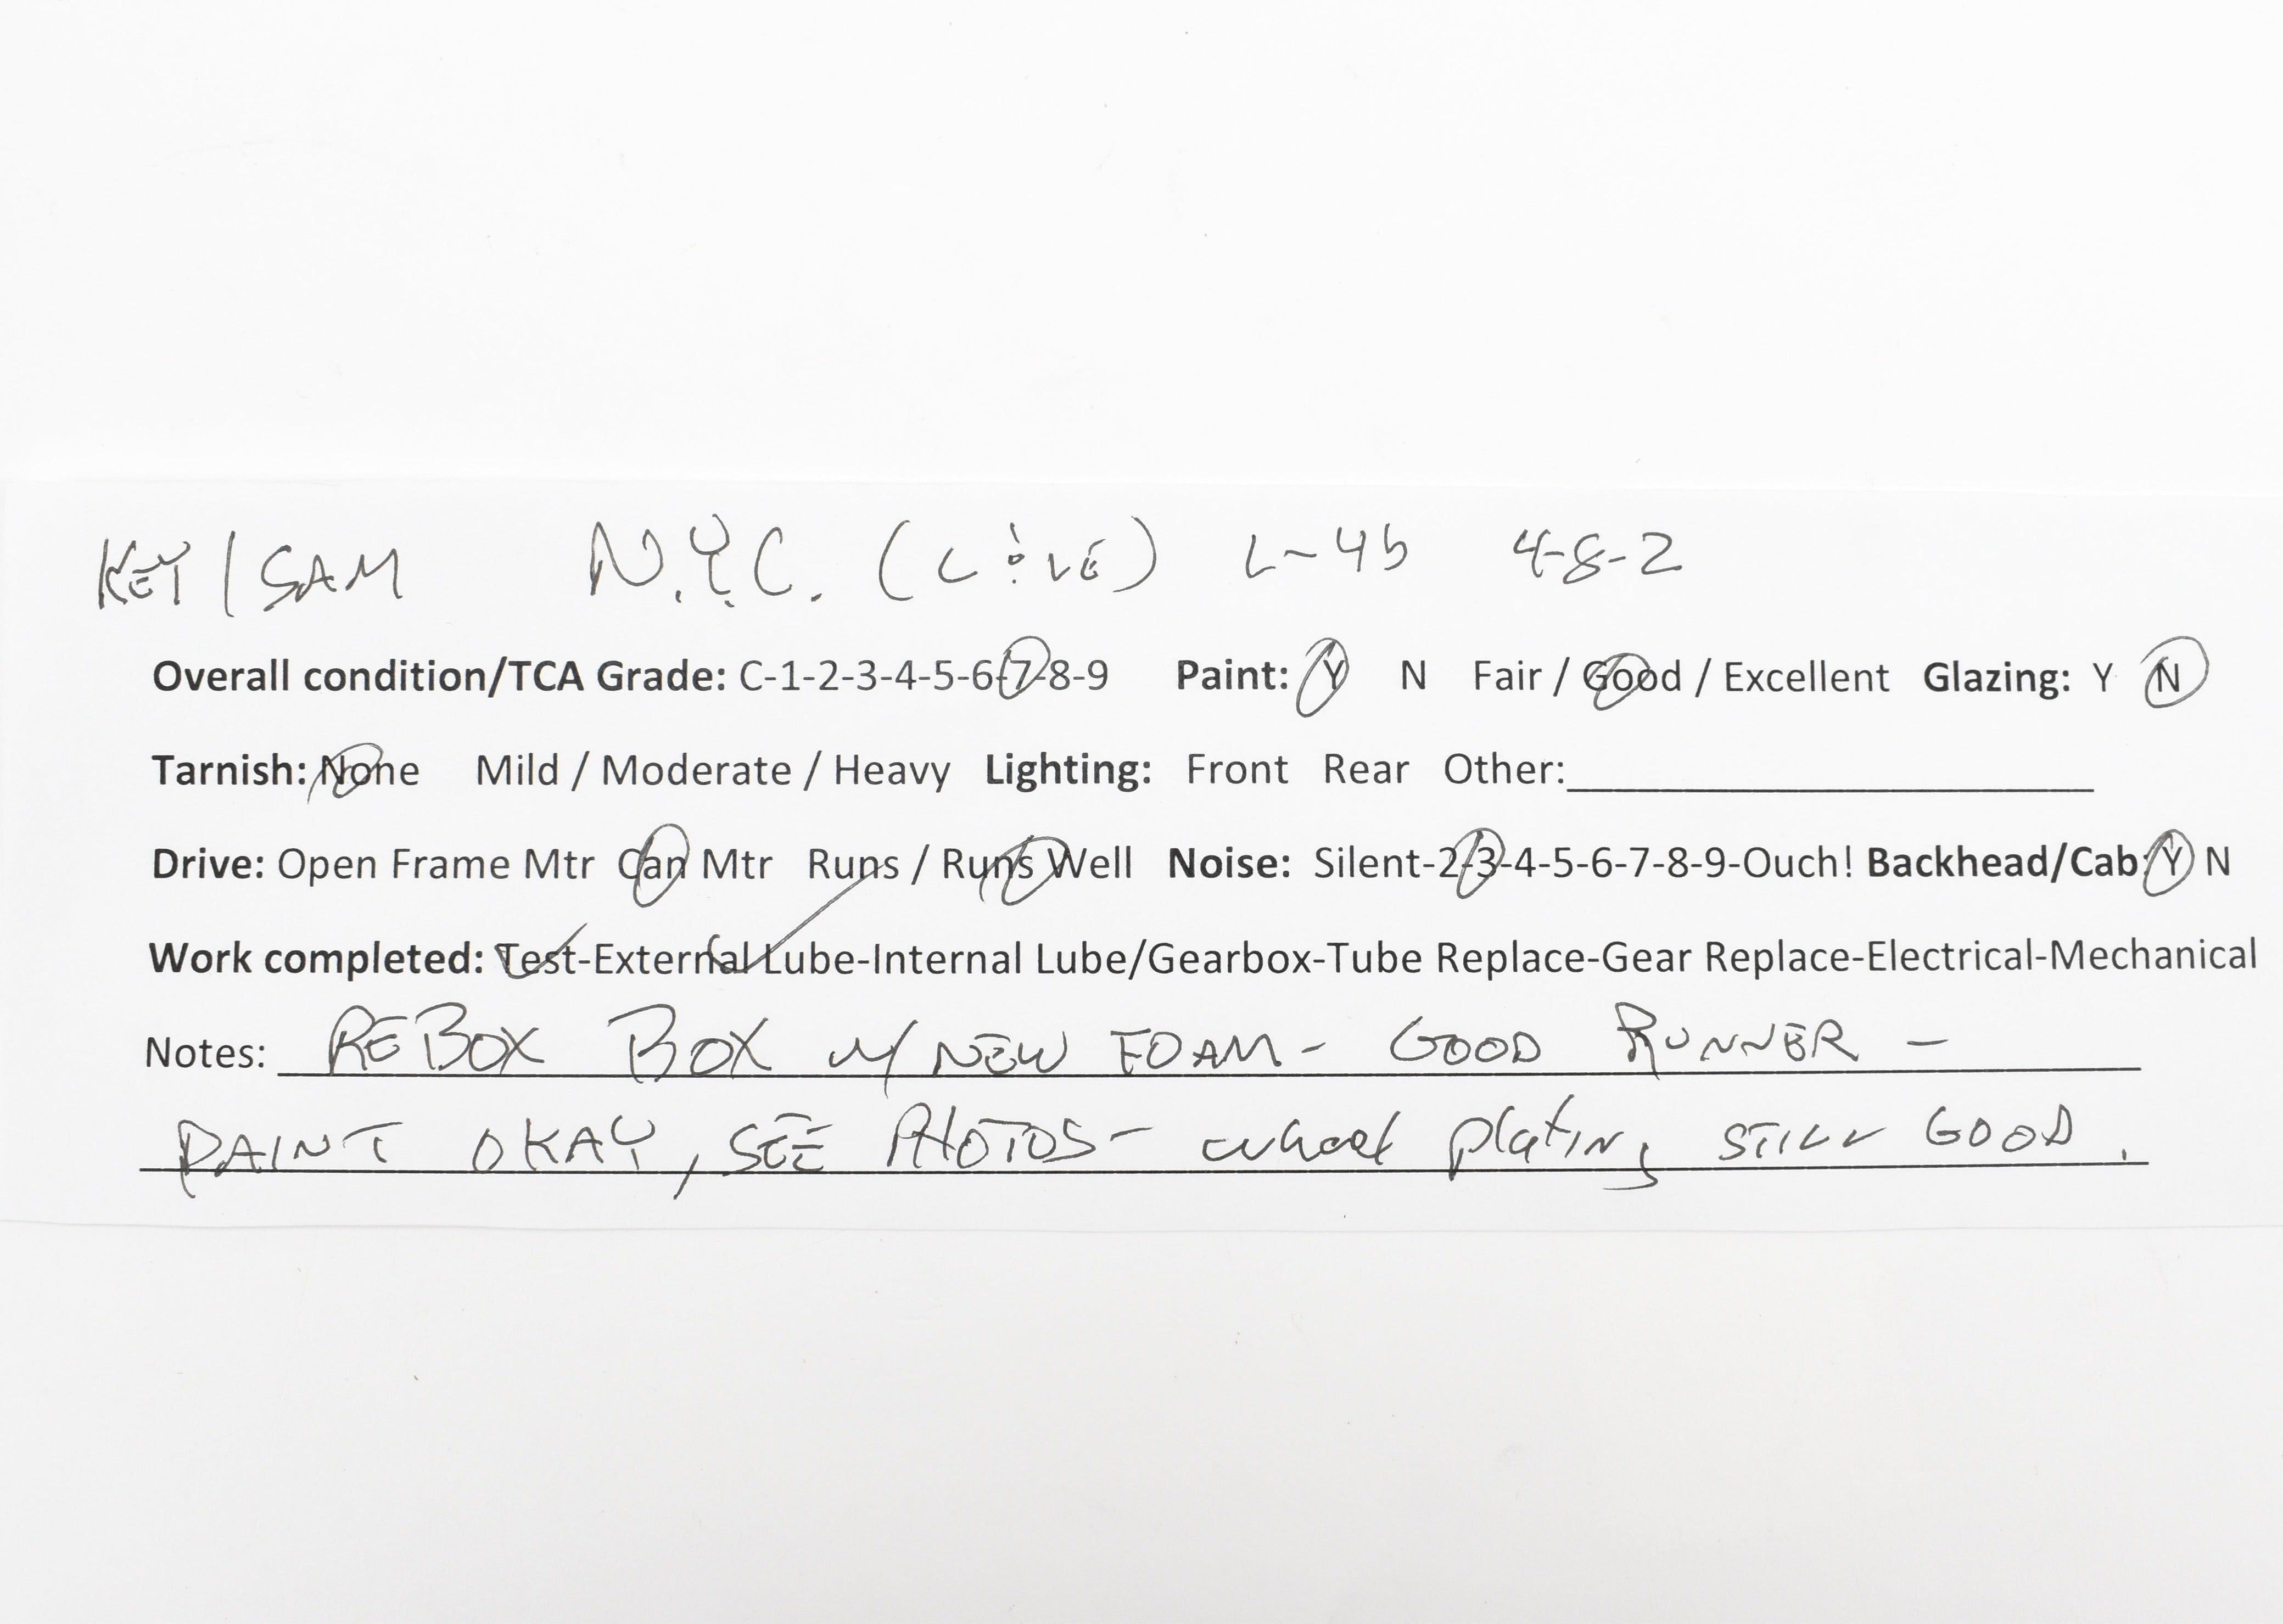 KEY/SAM N.Y.C. (Line) L-4b 4-8-2
Overall condition/TCA Grade: C-1-2-3-4-5-6-7-8-9 Paint: Y N Fair / Good / Excellent Glazing: Y N
Tarnish: None Mild / Moderate / Heavy Lighting: Front Rear Other:
Drive: Open Frame Mtr Can Mtr Runs / Runs Well Noise: Silent-2-3-4-5-6-7-8-9-Ouch! Backhead/Cab: Y N
Work completed: Test-External Lube-Internal Lube/Gearbox-Tube Replace-Gear Replace-Electrical-Mechanical
Notes: REBOX BOX w/ NEW FOAM - GOOD RUNNER -
PAINT OKAY, SEE PHOTOS - wheel plating STILL GOOD.